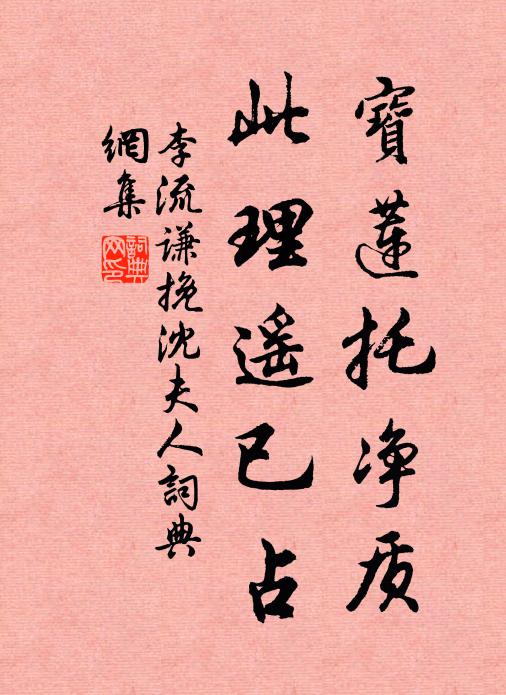 寶蓮托净质
此理遥已占
李流谦挽沈夫人詞典
網集
詞典网印